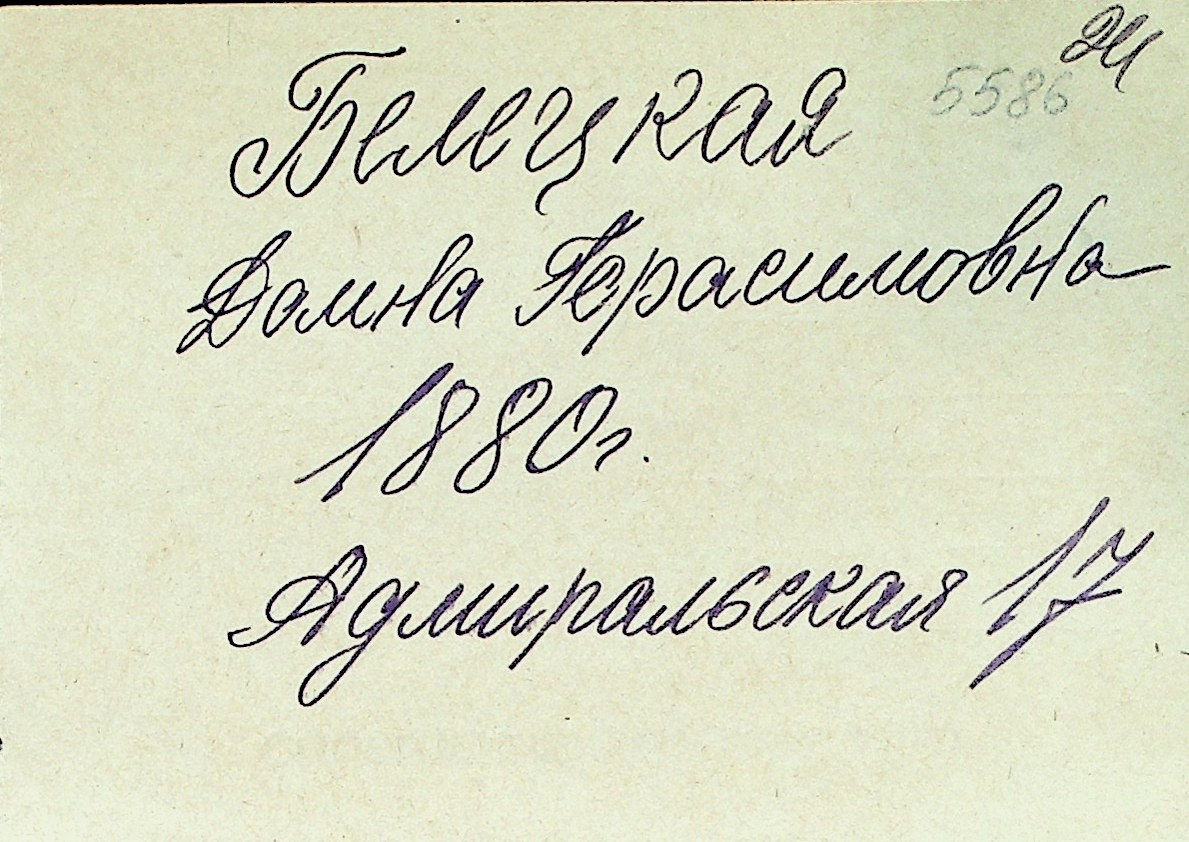 24
5586
Белецкая
Домна Герасимовна
1880г.
Адмиральская 17